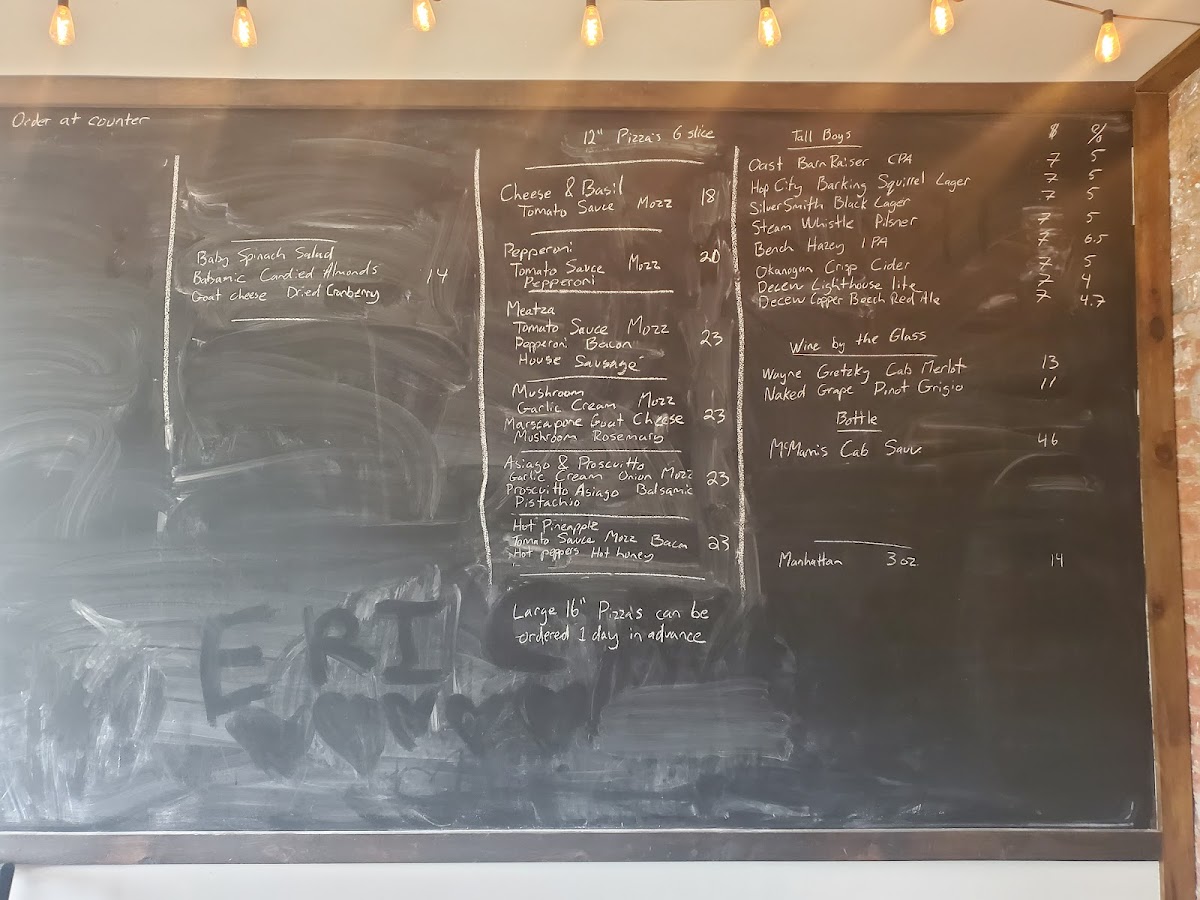 Order at counter
Baby Spinach Salad
Balsamic Candied Almonds 14
Goat cheese Dried Cranberry
12" Pizza's 6 slice
Cheese & Basil
Tomato Sauce Mozz 18
Pepperoni
Tomato Sauce Mozz 20
Pepperoni
Meatza
Tomato Sauce Mozz
Pepperoni Bacon 23
House Sausage
Mushroom
Garlic Cream Mozz
Marscapone Goat Cheese 23
Mushroom Rosemary
Asiago & Proscuitto
Garlic Cream Onion Mozz 23
Proscuitto Asiago Balsamic
Pistachio
Hot Pineapple
Tomato Sauce Mozz Bacon 23
Hot peppers Hot honey
Large 16" Pizza's can be
ordered 1 day in advance
Tall Boys $ %
Oast Barn Raiser CPA 7 5
Hop City Barking Squirrel Lager 7 5
SilverSmith Black Lager 7 5
Steam Whistle Pilsner 7 5
Bench Hazey IPA 7 6.5
Okanogan Crisp Cider 7 5
Decew Lighthouse lite 7 4
Decew Copper Beech Red Ale 7 4.7
Wine by the Glass
Wayne Gretzky Cab Merlot 13
Naked Grape Pinot Grigio 11
Bottle
McManis Cab Sauv 46
Manhattan 3 oz. 14